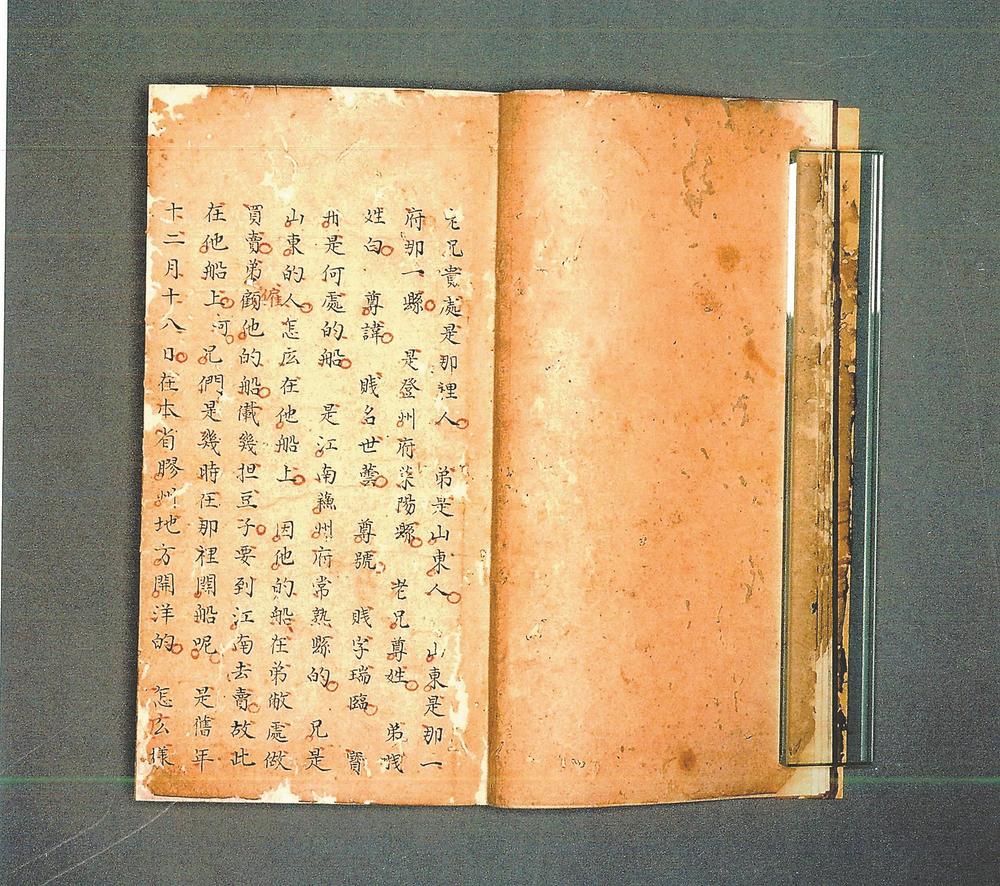 老兄貴處是那裡人 弟是山東人 山東是那一
府那一縣 是登州府萊陽縣 老兄尊姓 弟賎
姓白 尊諱 賎名世蕓 尊號 賎字瑞臨 寶
舟是何處的船 是江南蘓州府常熟縣的 兄是
山東的人怎庅在他船上 因他的船在弟敝處做
買賣弟顧雇他的船儎幾担豆子要到江南去賣故此
在他船上 河兄們是幾時在那裡開船呢 是舊年
十二月十八日在本省膠州地方開洋的 怎庅樣